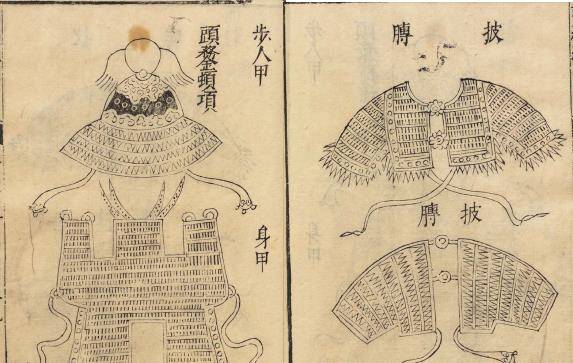 披膊
披膊
步人甲
頭鍪頓項
身甲